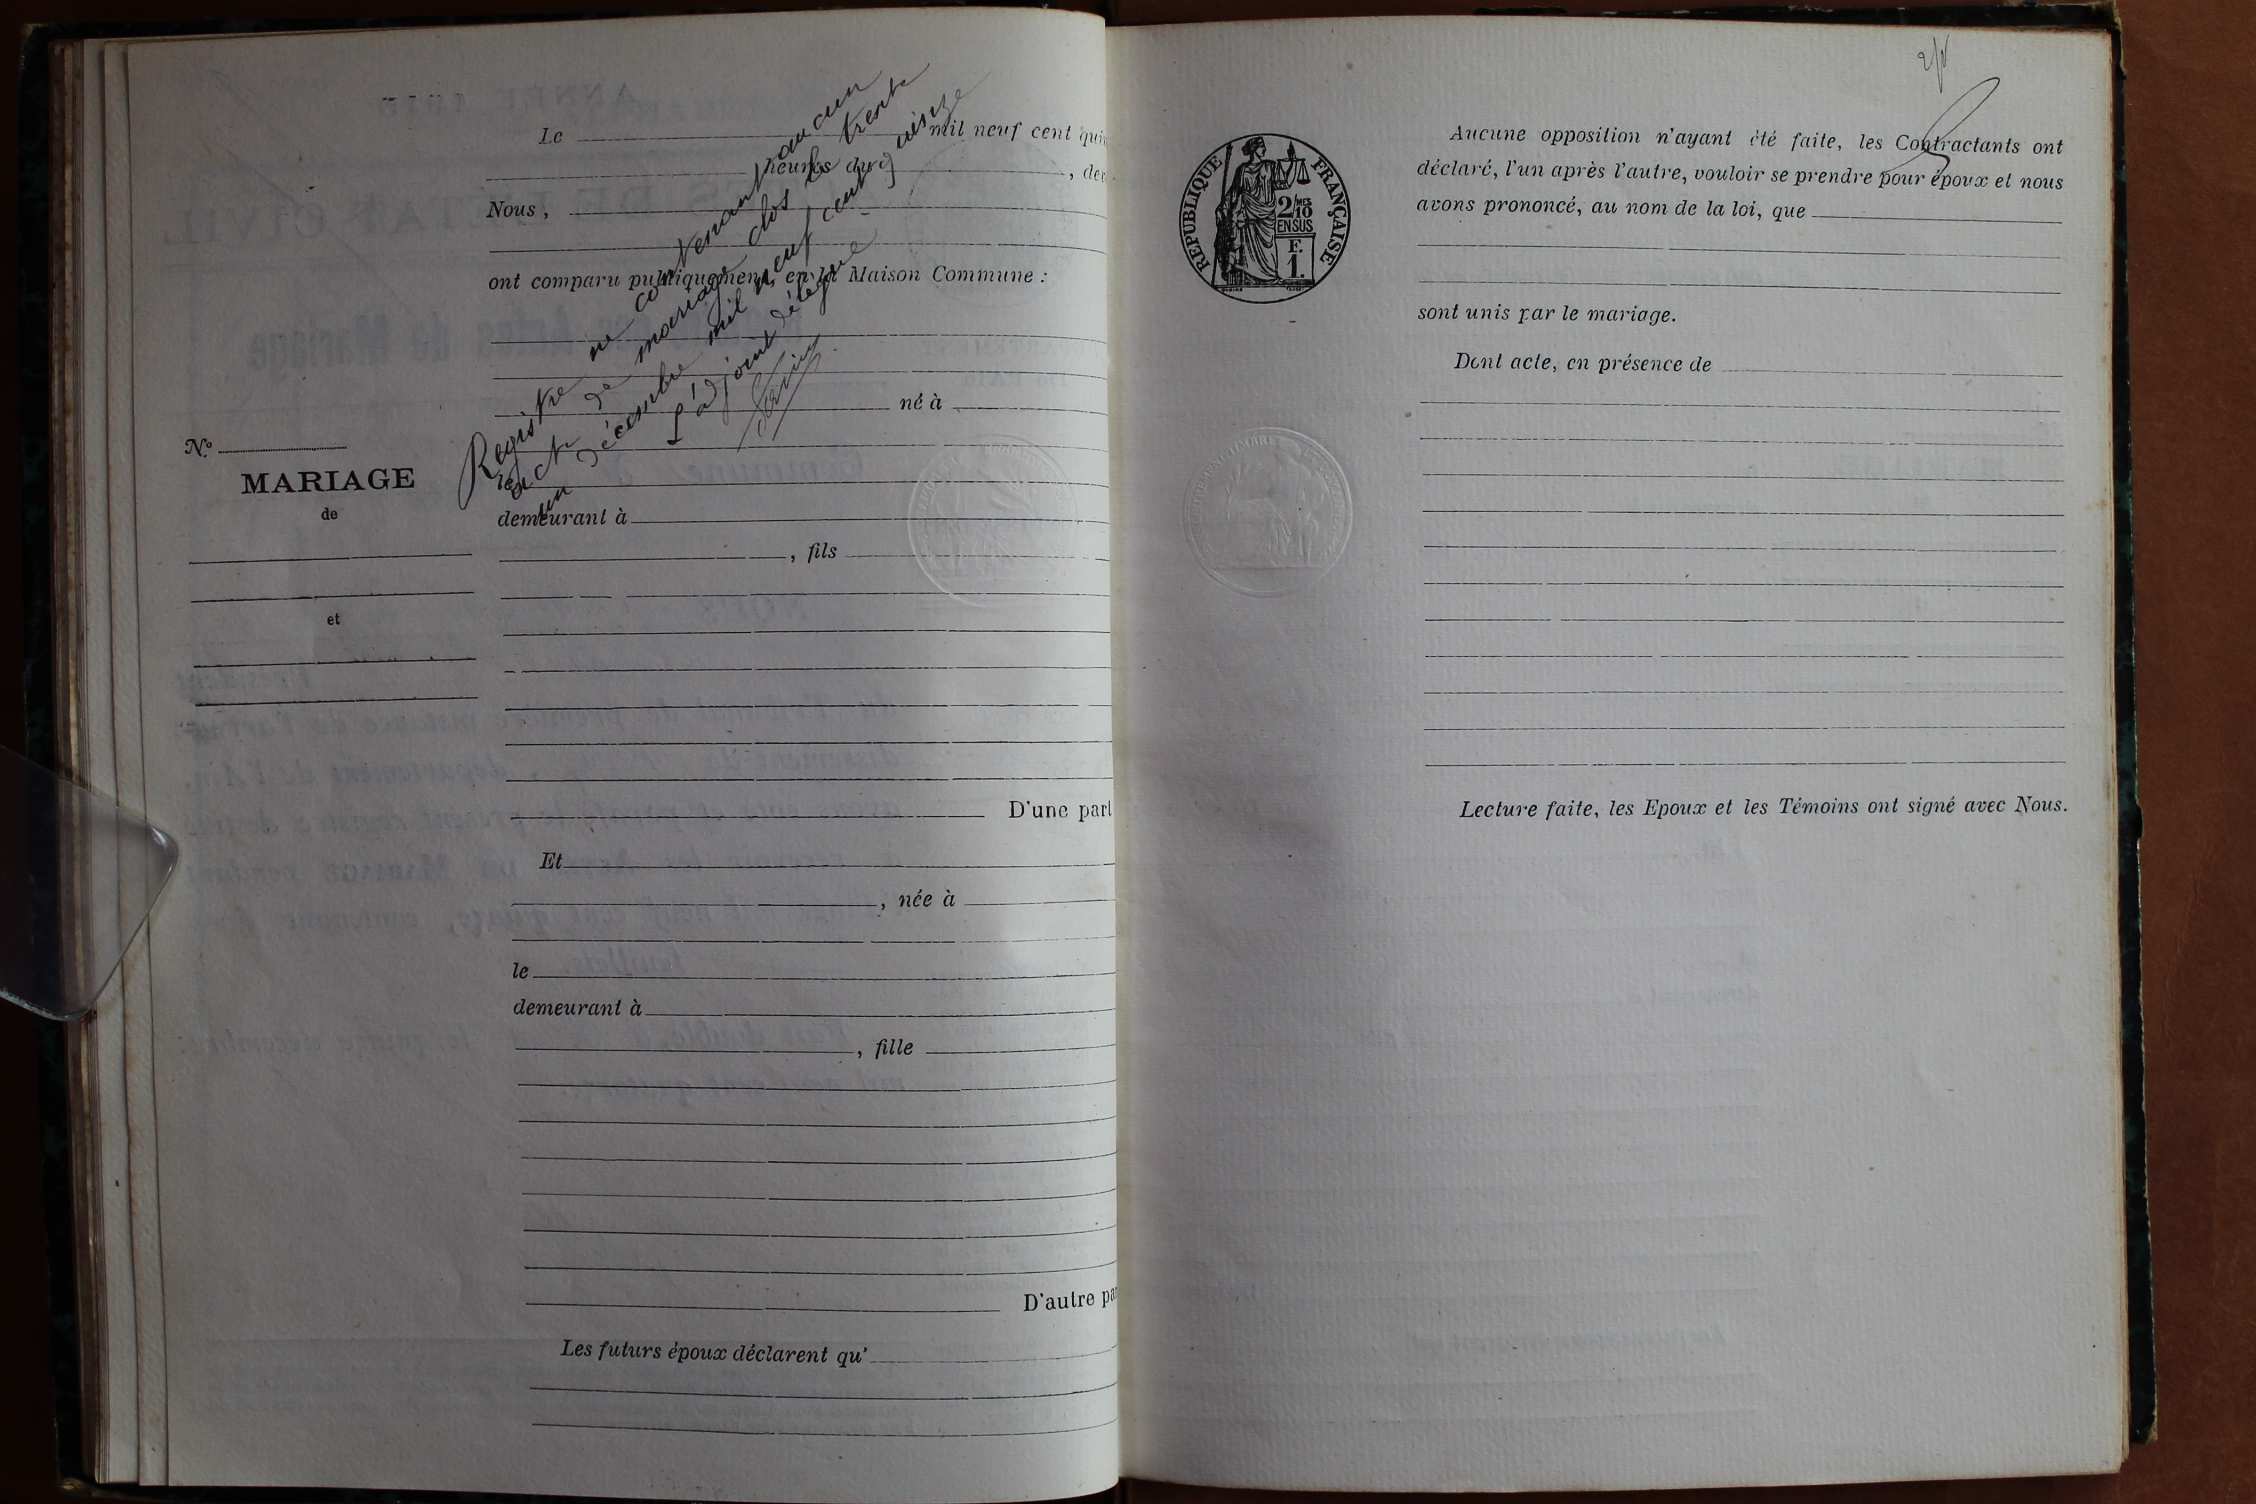 Le mil neuf cent qui
heures du , de
Nous ,
ont comparu publiquement, en la Maison Commune :
né à
le
demeurant à
, fils
D'une part
Et
, née à
le
demeurant à
, fille
D'autre pa
Les futurs époux déclarent qu'
N.º
MARIAGE
de
et
Registre ne contenant aucun
acte de mariage clos le trente
un décembre mil neuf cent quinze
L'adjoint délégué
RÉPUBLIQUE FRANÇAISE
2/10
EN SUS
F.
1.
Aucune opposition n'ayant été faite, les Contractants ont
déclaré, l'un après l'autre, vouloir se prendre pour époux et nous
avons prononcé, au nom de la loi, que
sont unis par le mariage.
Dont acte, en présence de
Lecture faite, les Epoux et les Témoins ont signé avec Nous.